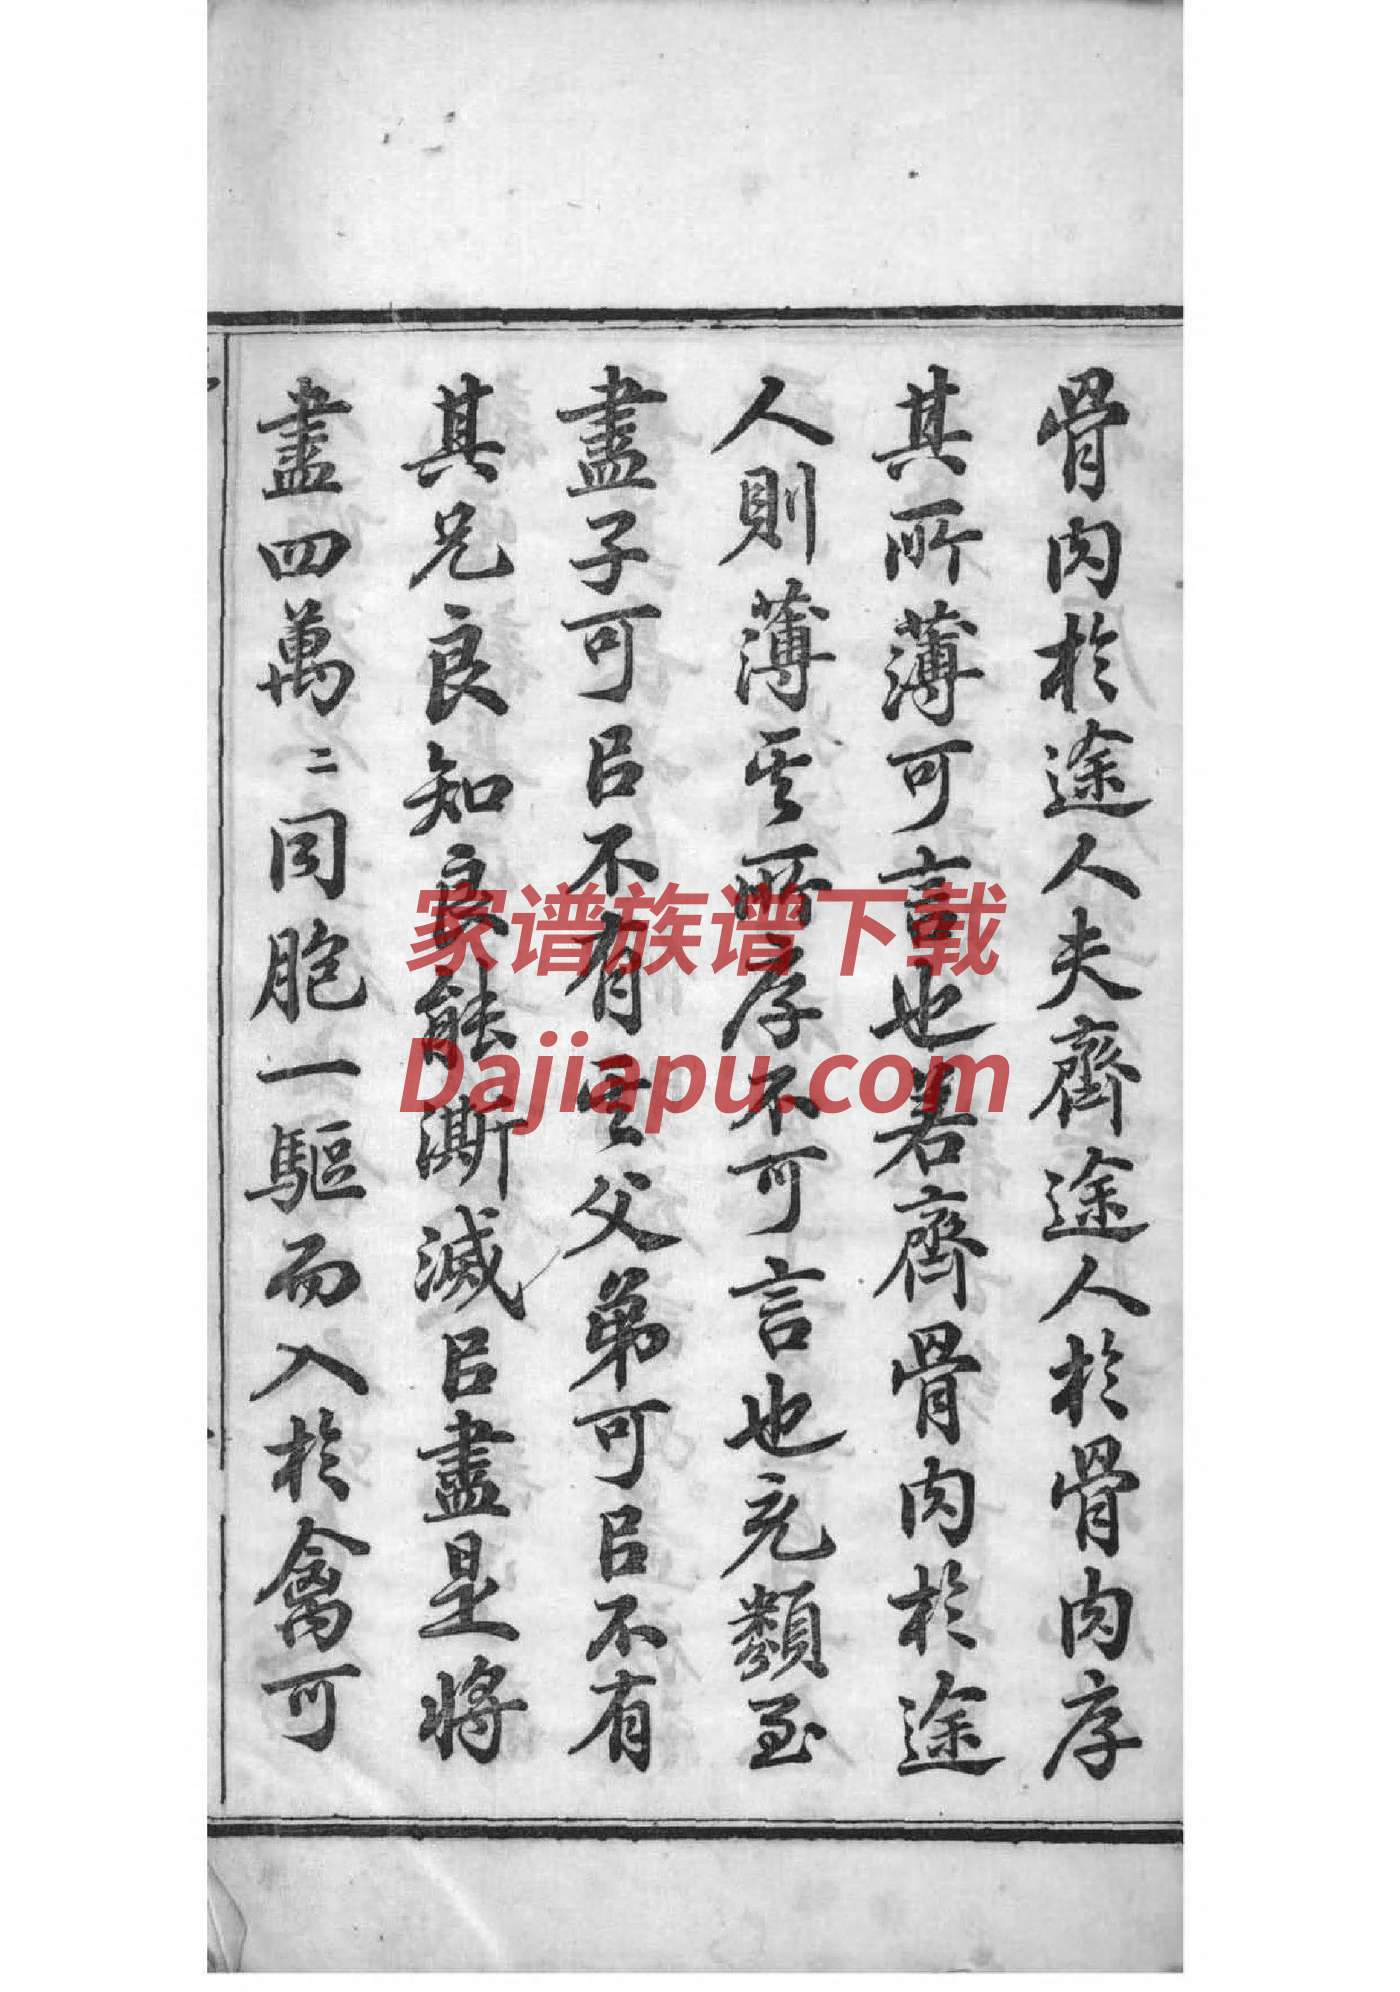 骨肉於途人夫齊途人於骨肉厚
其所薄可言也若齊骨肉於途
人則薄其所厚不可言也充類至
盡子可㠯不有其父弟可㠯不有
其兄良知良能澌滅㠯盡是將
盡四萬二同胞一驅而入於禽可
家谱族谱下载
Dajiapu.com